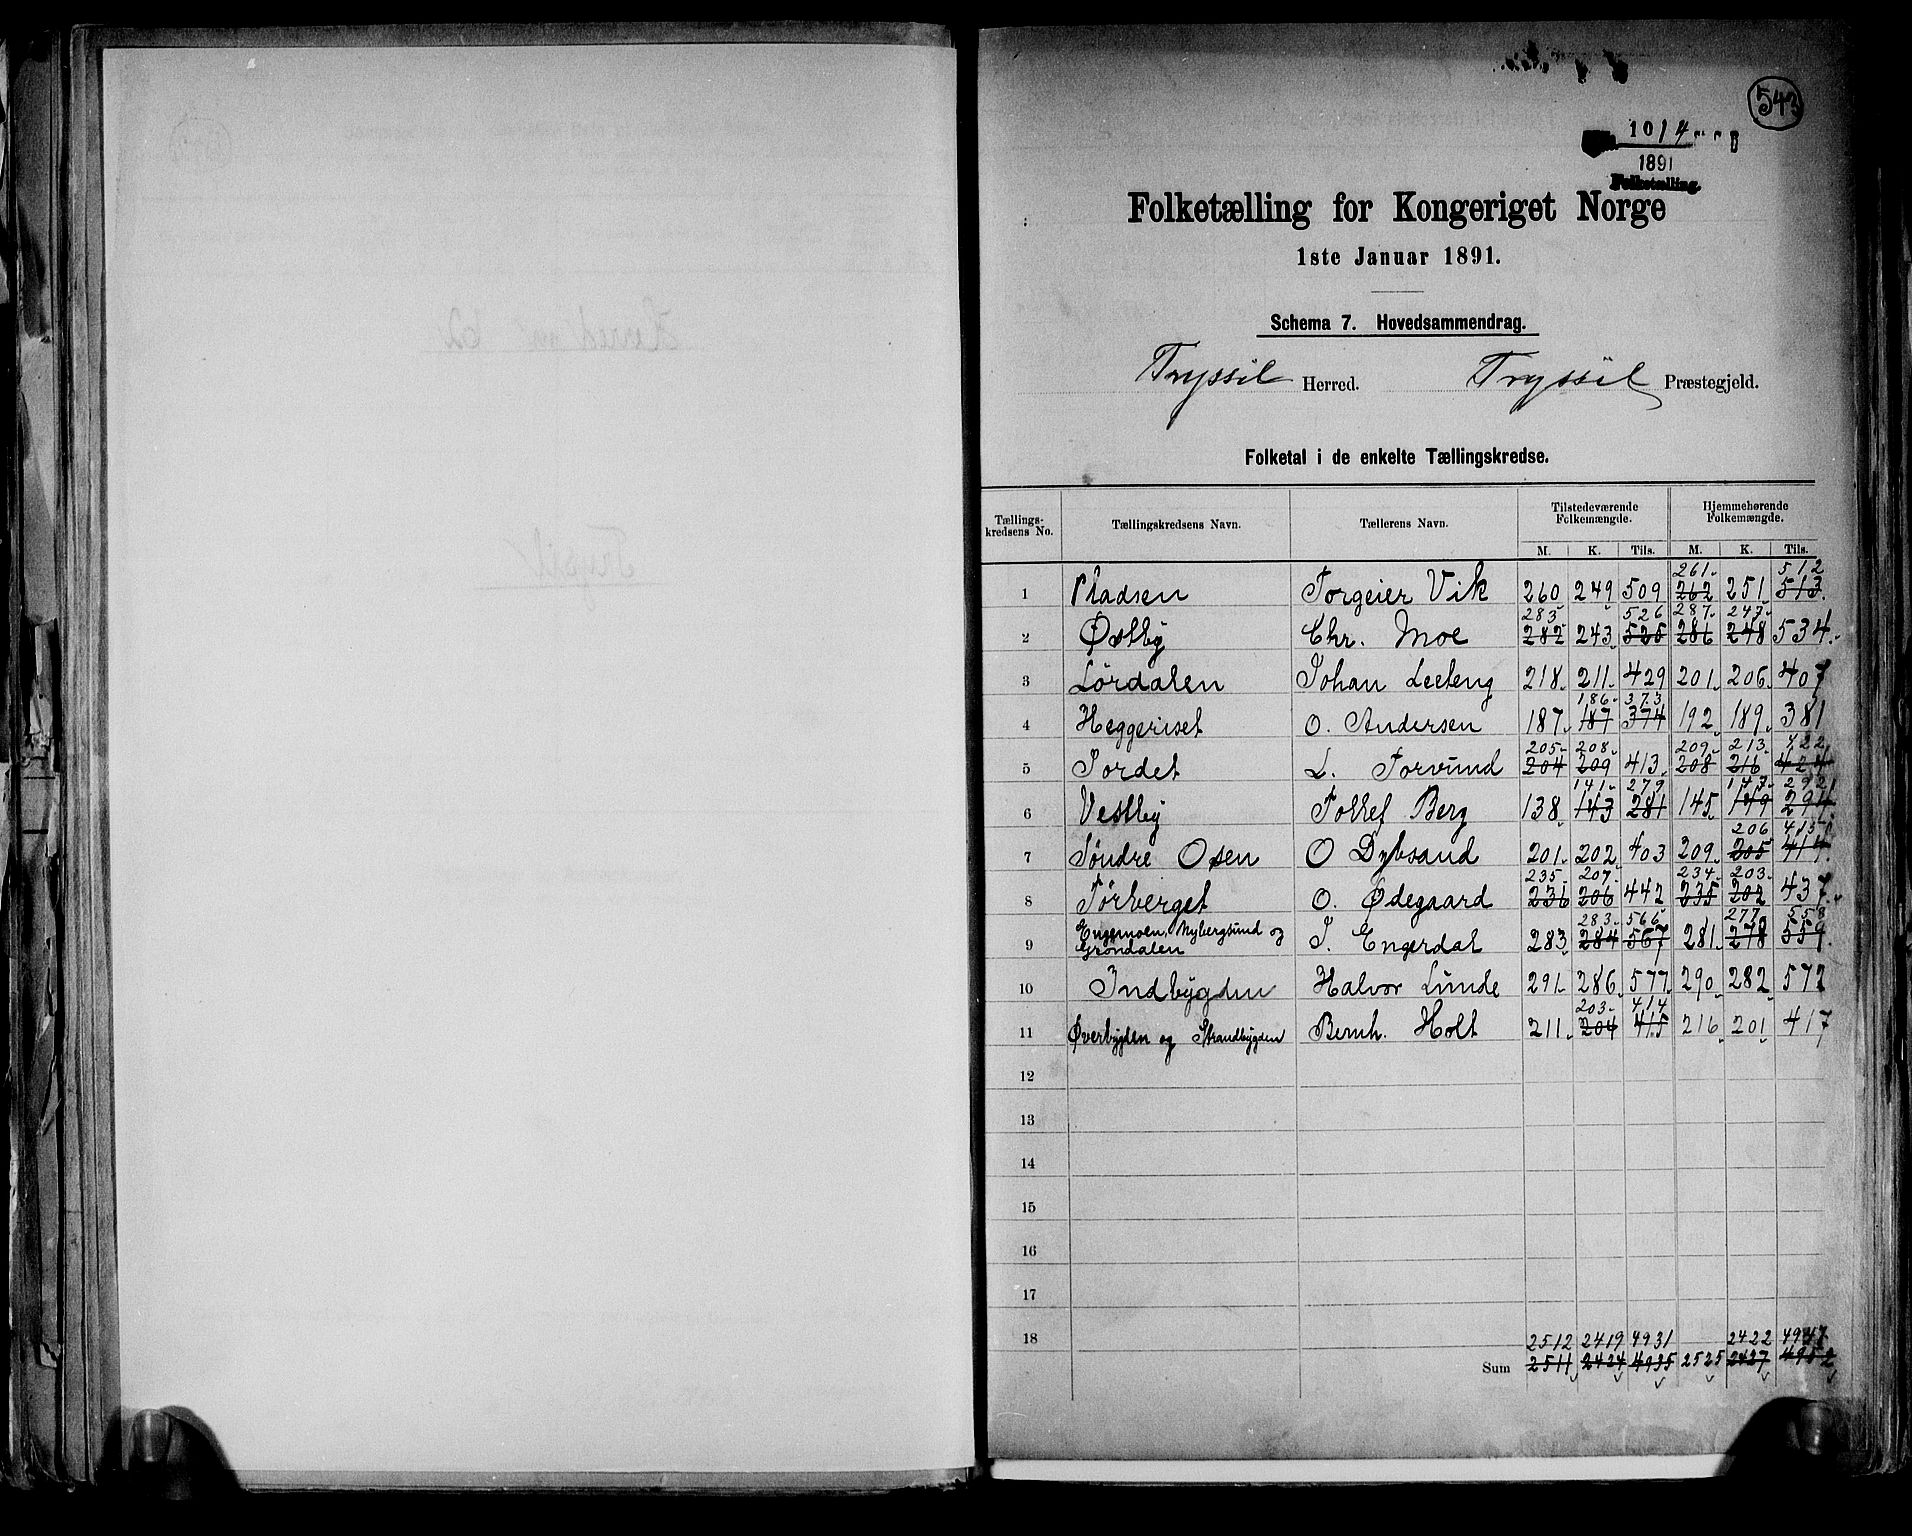 543
1014
1891
Folketælling.
Folketælling for Kongeriget Norge
1ste Januar 1891.
Schema 7. Hovedsammendrag.
Tryssil Herred. Tryssil Præstegjeld.
Folketal i de enkelte Tællingskredse.
Tællings-kredsens No. Tællingskredsens Navn. Tællerens Navn. Tilstedeværende Folkemængde. Hjemmehørende Folkemængde.
M. K. Tils. M. K. Tils.
261 512
1 Pladsen Torgeier Vik 260 249 509 262 251 513
283 526 287 247
2 Østby Chr. Moe 282 243 525 286 248 534
3 Lørdalen Johan Leeteng 218 211 429 201 206 407
186 373
4 Heggeriset O. Andersen 187 187 374 192 189 381
205 208 209 213 422
5 Jordet L. Torvund 204 209 413 208 216 424
141 279 147 292
6 Vestby Tollef Berg 138 143 281 145 149 294
206 415
7 Søndre Osen O Dybsand 201 202 403 209 205 414
235 207 234 203
8 Tørberget O. Ødegaard 236 206 442 235 202 437
283 566 277 558
9 Engemoen, Nybergsund og Grøndalen J. Engerdal 283 284 567 281 278 559
10 Indbygden Halvor Lunde 291 286 577 290 282 572
203 414
11 Øverbygden og Strandbygden Bernh. Holt 211 204 415 216 201 417
12
13
14
15
16
17
18 2512 2419 4931 2422 4947
Sum 2511 2424 4935 2525 2427 4952